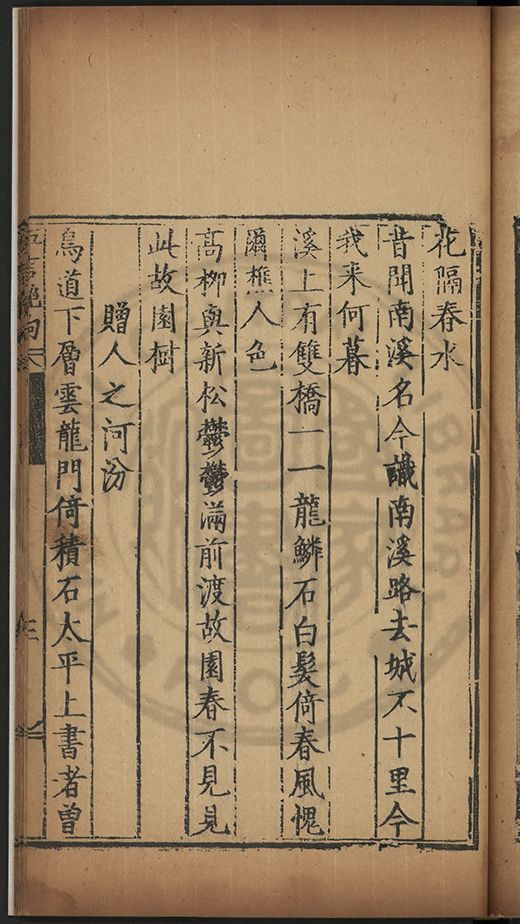 花隔春水
昔聞南溪名今識南溪路去城不十里今
我来何暮
溪上有雙橋一一龍鱗石白髮倚春風愧
爾樵人色
高柳與新松鬱鬱滿前渡故園春不見見
此故園樹
贈人之河汾
鳥道下層雲龍門倚積石太平上書者曾
五言絕句